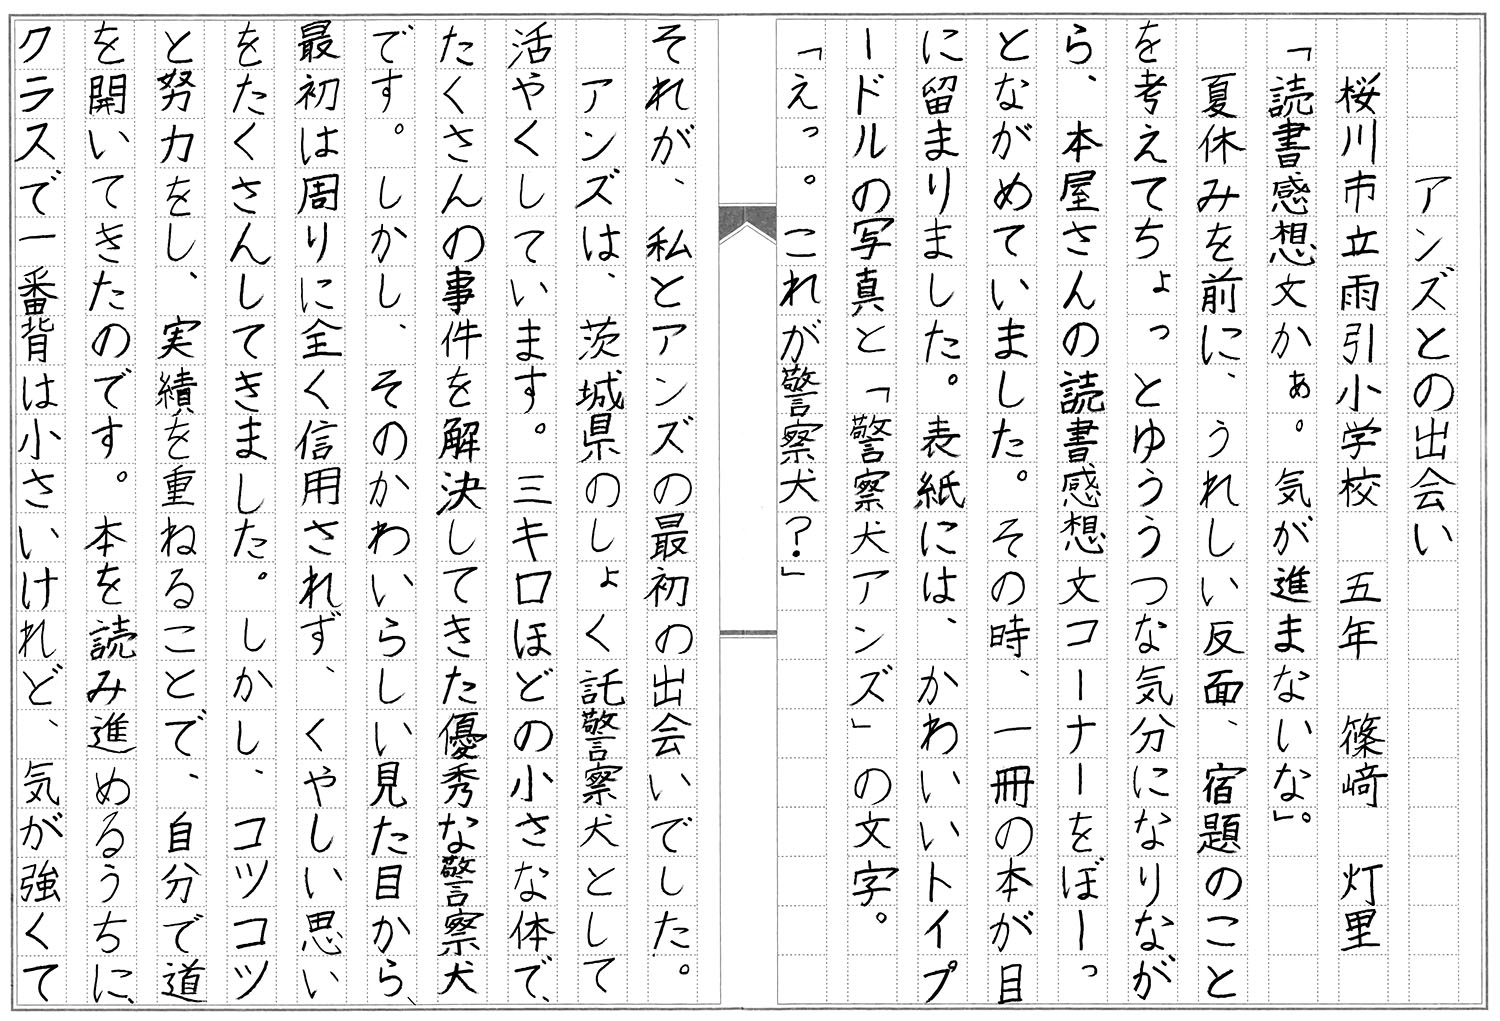 アンズとの出会い
桜川市立雨引小学校　五年　篠﨑　灯里
「読書感想文かぁ。気が進まないな」。
夏休みを前に、うれしい反面、宿題のこと
を考えてちょっとゆううつな気分になりなが
ら、本屋さんの読書感想文コーナーをぼーっ
とながめていました。その時、一冊の本が目
に留まりました。表紙には、かわいいトイプ
ードルの写真と「警察犬アンズ」の文字。
「えっ。これが警察犬？」
それが、私とアンズの最初の出会いでした。
アンズは、茨城県のしょく託警察犬として
活やくしています。三キロほどの小さな体で、
たくさんの事件を解決してきた優秀な警察犬
です。しかし、そのかわいらしい見た目から、
最初は周りに全く信用されず、くやしい思い
をたくさんしてきました。しかし、コツコツ
と努力をし、実績を重ねることで、自分で道
を開いてきたのです。本を読み進めるうちに、
クラスで一番背は小さいけれど、気が強くて